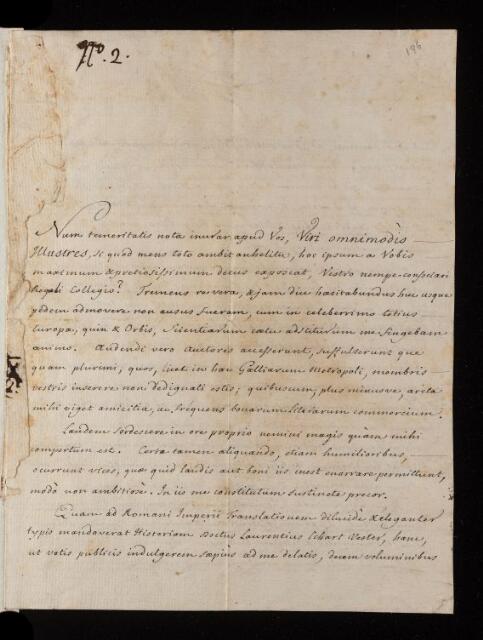 N.º 2.
186
Num temeritatis nota inurar apud Vos, Viri omnimodis
Illustres, si quod mens toto ambit anhelitu, hoc ipsum a Vobis
maximum & pretiosissimum decus exposcat, Vestro nempe conseclari
Regali Collegio? Tremens re vera, & jam diu haesitabundus huc usque
pedem admovere non ausus fueram, cum in celeberrimo totius
Europae, quin & Orbis, Scientiarum caetu adstiturum me fingebam
animo. Audendi vero Auctores accesserunt, suffulserunt que
quam plurimi, quos, licet in hac Galliarum Metropoli, membris
vestris inserere non dedignati estis; quibuscum, plus minusve, arcta
mihi viget amicitia, ac frequens bonarum literarum commercium.
Laudem sordescere in ore proprio nemini magis quàm mihi
compertum est. Certae tamen aliquando, etiam humilioribus,
occurrunt vices, quae quid laudis aut boni iis inest enarrare permittunt,
modò non ambitiosè. In iis me constitutum sustinete precor.
Quam ad Romani Imperii Translationem dilucidè & eleganter
typis mandaverat Historiam doctus Laurentius Echart Vester, hanc,
ut votis publicis indulgerem saepius ad me delatis, decem voluminibus